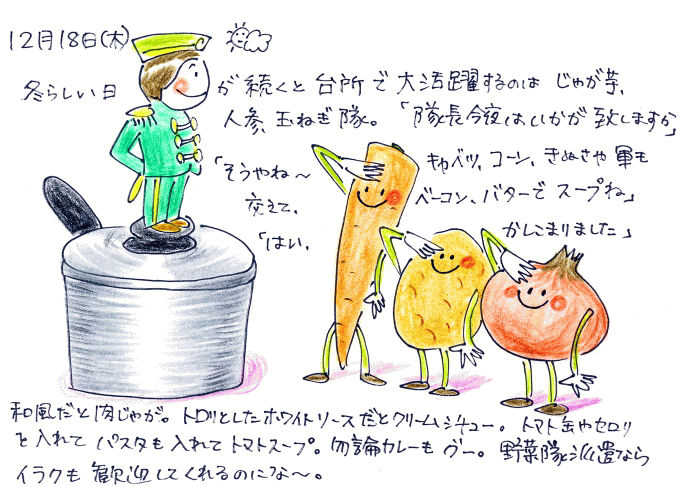 12月18日(木)
冬らしい日が続くと台所で大活躍するのはじゃが芋、
人参、玉ねぎ隊。「隊長今夜はいかが致しますか」
「そうやね〜キャベツ、コーン、きぬさや軍も
交えて、ベーコン、バターでスープね」
「はい、かしこまりました」
和風だと肉じゃが。トロリとしたホワイトソースだとクリームシチュー。トマト缶やセロリ
を入れてパスタも入れてトマトスープ。勿論カレーもグー。野菜隊派遣なら
イラクも歓迎してくれるのにな〜。